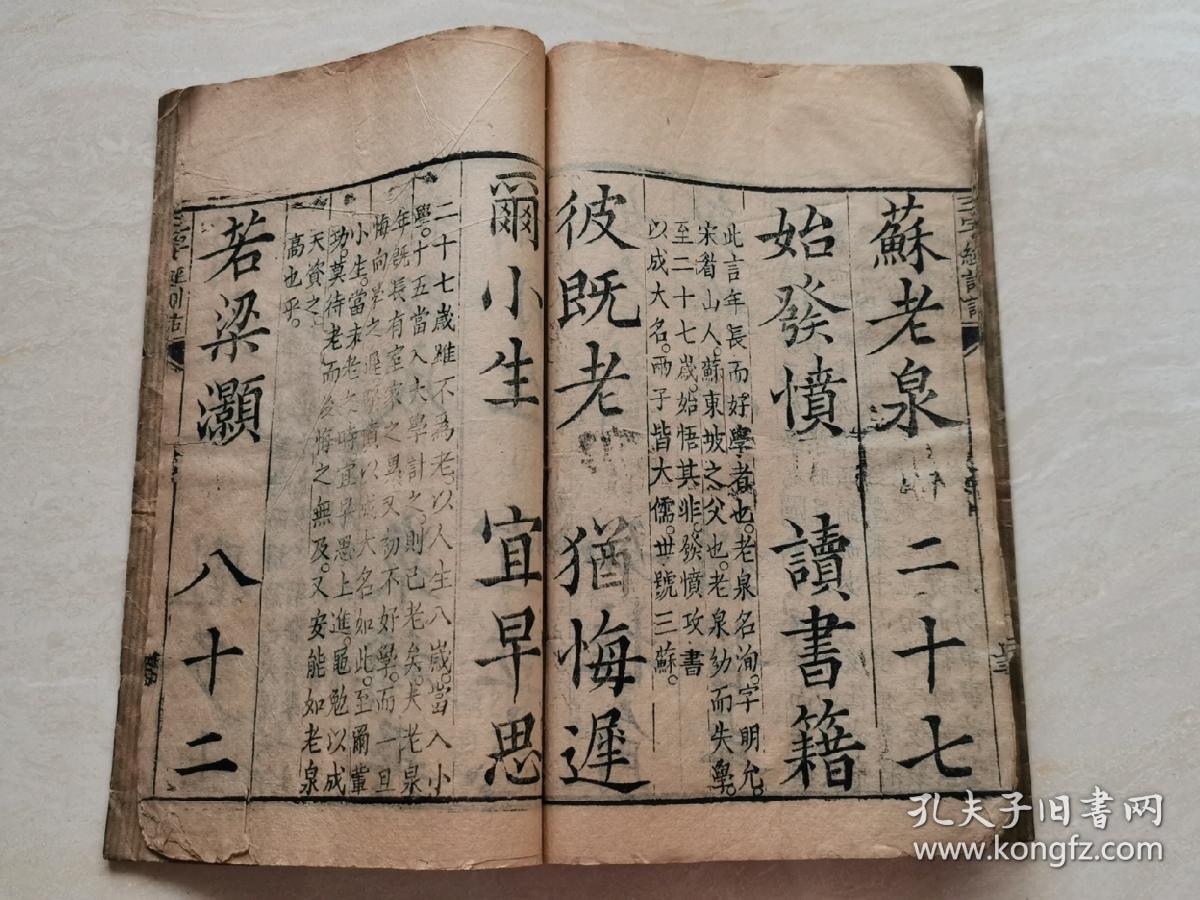 蘇老泉 二十七
始發憤 讀書籍
此言年長而好學者也。老泉名洵。字明允。
宋眉山人。蘇東坡之父也。老泉幼而失學。
至二十七歲。始悟其非。發憤攻書
以成大名。兩子皆大儒。世號三蘇。
彼既老 猶悔遲
爾小生 宜早思
二十七歲雖不為老。以人生八歲。當入小
學。十五當入大學計之。則已老矣。夫老泉
年既長有室家之累。又幼不好學。而一旦
悔向學之遲發憤以成大名如此。至爾輩
小生。當未老之時。宜早思上進。黽勉以成
功。莫待老而後悔之無及。又安能如老泉
天資之
高也乎。
若梁灝 八十二
孔夫子旧书网
www.kongfz.com